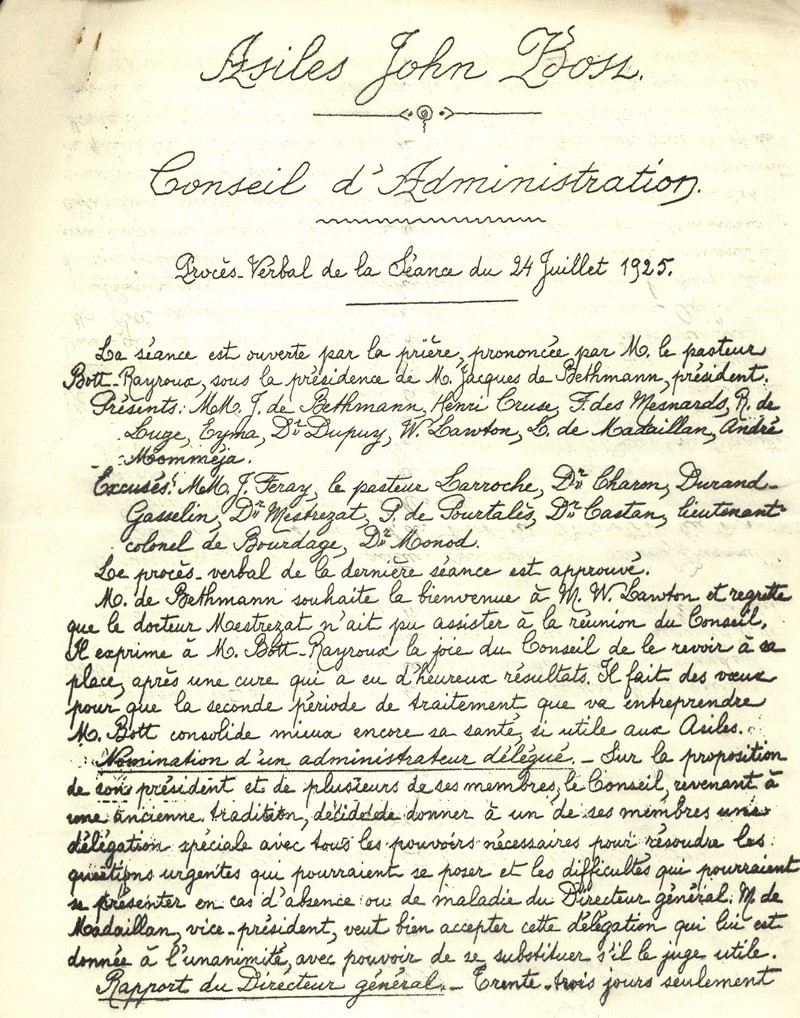 Asiles John Bost.
Conseil d'Administration.
Procès-Verbal de la Séance du 24 Juillet 1925.
La séance est ouverte par la prière, prononcée par M. le pasteur
Bott-Rayroux, sous la présidence de M. Jacques de Bethmann, président.
Présents: MM. J. de Bethmann, Henri Cruse, F. des Mesnards, R. de
Luze, Eyma, Dr Dupuy, W. Lawton, L. de Madaillan, André
Momméja.
Excusés: MM. J. Feray, le pasteur Larroche, Dr Charon, Durand-
Gasselin, Dr Mestrezat, P. de Pourtalès, Dr Castan, lieutenant-
colonel de Bourdage, Dr Monod.
Le procès-verbal de la dernière séance est approuvé.
M. de Bethmann souhaite la bienvenue à M. W. Lawton et regrette
que le docteur Mestrezat n'ait pu assister à la réunion du Conseil.
Il exprime à M. Bott-Rayroux la joie du Conseil de le revoir à sa
place, après une cure qui a eu d'heureux résultats. Il fait des vœux
pour que la seconde période de traitement que va entreprendre
M. Bott consolide mieux encore sa santé, si utile aux Asiles.
Nomination d'un administrateur délégué. - Sur la proposition
de son président et de plusieurs de ses membres, le Conseil, revenant à
une ancienne tradition, décide de donner à un de ses membres une
délégation spéciale avec tous les pouvoirs nécessaires pour résoudre les
questions urgentes qui pourraient se poser et les difficultés qui pourraient
se présenter en cas d'absence ou de maladie du Directeur général. M. de
Madaillan, vice-président, veut bien accepter cette délégation qui lui est
donnée à l'unanimité, avec pouvoir de se substituer s'il le juge utile.
Rapport du Directeur général. - Trente-trois jours seulement